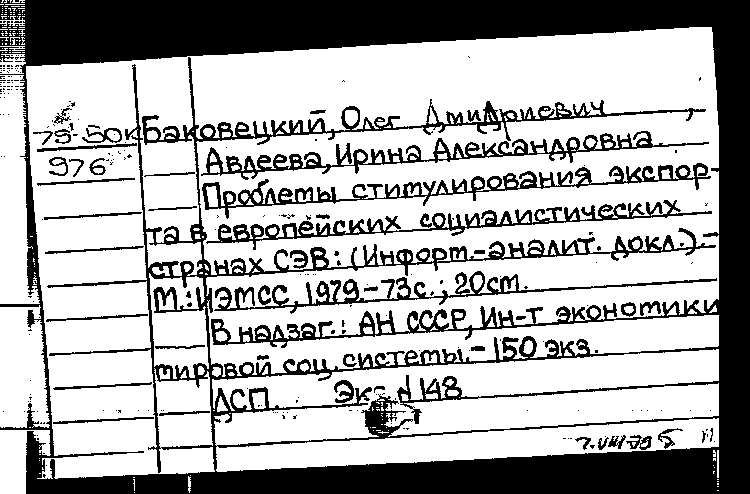 79-50К Баковецкий, Олег Дмидриевич,
976 Авдеева, Ирина Александровна.
Проблемы стимулирования экспор-
та в европейских социалистических
странах СЭВ: (Информ.-аналит. докл.).-
М.: ИЭМСС, 1979.-73с.; 20см.
В надзаг.: АН СССР, Ин-т экономики
мировой соц. системы.- 150 экз.
ДСП. Экз. N 148
7.VIII-79